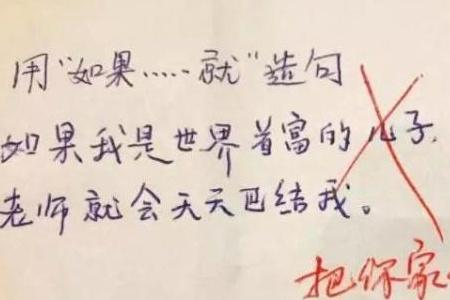 用“如果……就”造句
如果我是世界首富的儿子，
老师就会天天巴结我。
把你家